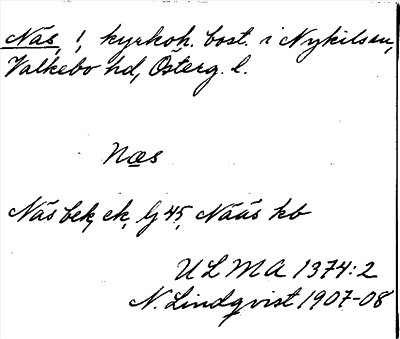 Näs, !, kyrkoh. bost. i Nykilsen,
Valkebo hd, Österg. l.
Næs
Näs bek, ek, lj 45, Nääs kb
ULMA 1374:2
N. Lindqvist 1907-08